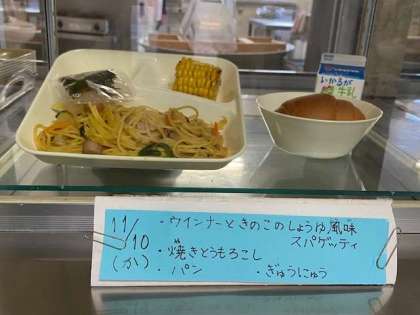 いかるが
牛乳
11/10
(か)
・ウインナーときのこのしょうゆ風味
スパゲッティ
・焼きとうもろこし
・パン ・ぎゅうにゅう